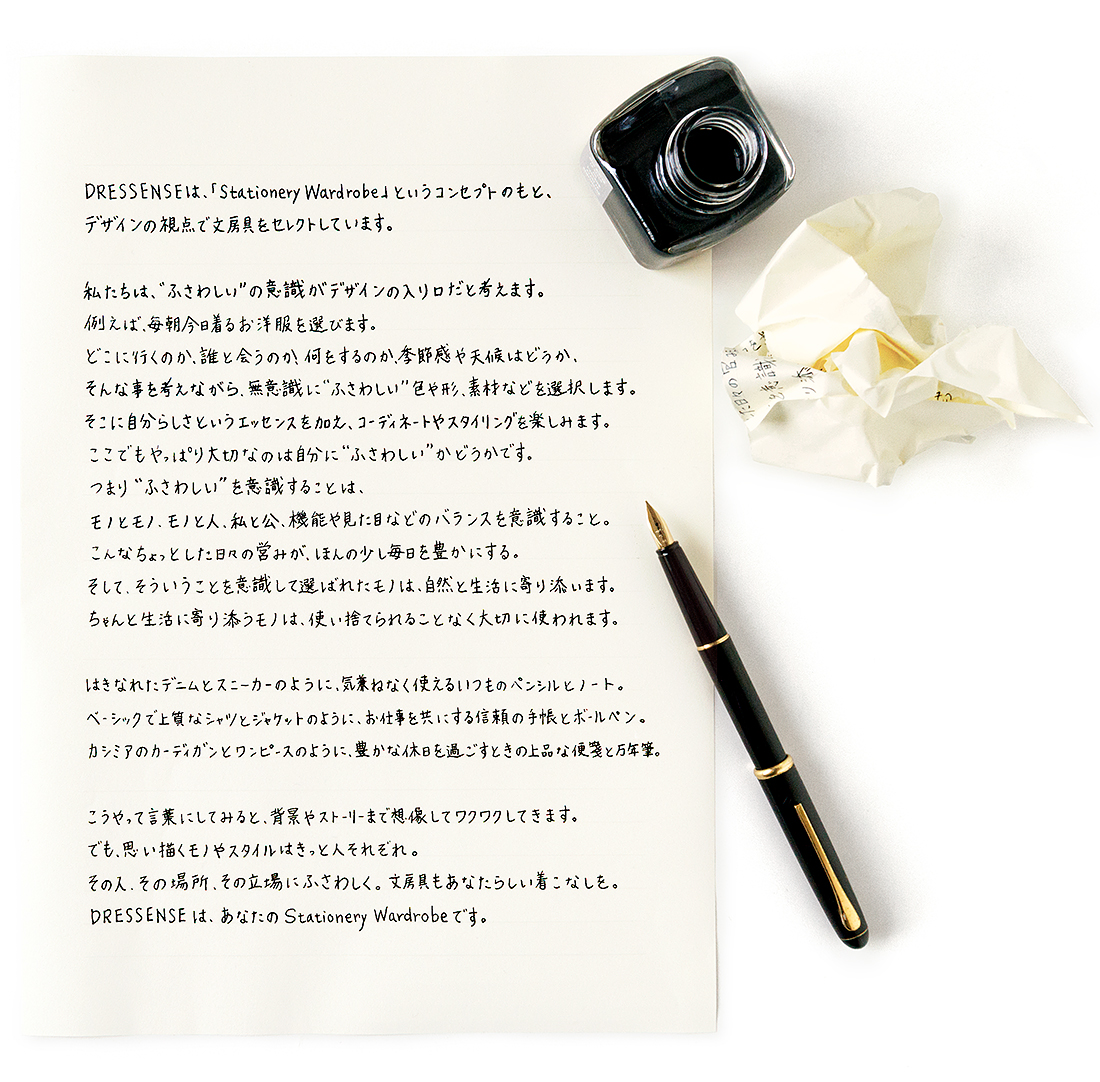 DRESSENSEは、「Stationery Wardrobe」というコンセプトのもと、
デザインの視点で文房具をセレクトしています。
私たちは、“ふさわしい”の意識がデザインの入り口だと考えます。
例えば、毎朝今日着るお洋服を選びます。
どこに行くのか、誰と会うのか、何をするのか、季節感や天候はどうか、
そんな事を考えながら、無意識に“ふさわしい”色や形、素材などを選択します。
そこに自分らしさというエッセンスを加え、コーディネートやスタイリングを楽しみます。
ここでもやっぱり大切なのは自分に“ふさわしい”かどうかです。
つまり“ふさわしい”を意識することは、
モノとモノ、モノと人、私と公、機能や見た目などのバランスを意識すること。
こんなちょっとした日々の営みが、ほんの少し毎日を豊かにする。
そして、そういうことを意識して選ばれたモノは、自然と生活に寄り添います。
ちゃんと生活に寄り添うモノは、使い捨てられることなく大切に使われます。
はきなれたデニムとスニーカーのように、気兼ねなく使えるいつものペンシルとノート。
ベーシックで上質なシャツとジャケットのように、お仕事を共にする信頼の手帳とボールペン。
カシミアのカーディガンとワンピースのように、豊かな休日を過ごすときの上品な便箋と万年筆。
こうやって言葉にしてみると、背景やストーリーまで想像してワクワクしてきます。
でも、思い描くモノやスタイルはきっと人それぞれ。
その人、その場所、その立場にふさわしく。文房具もあなたらしい着こなしを。
DRESSENSEは、あなたのStationery Wardrobeです。